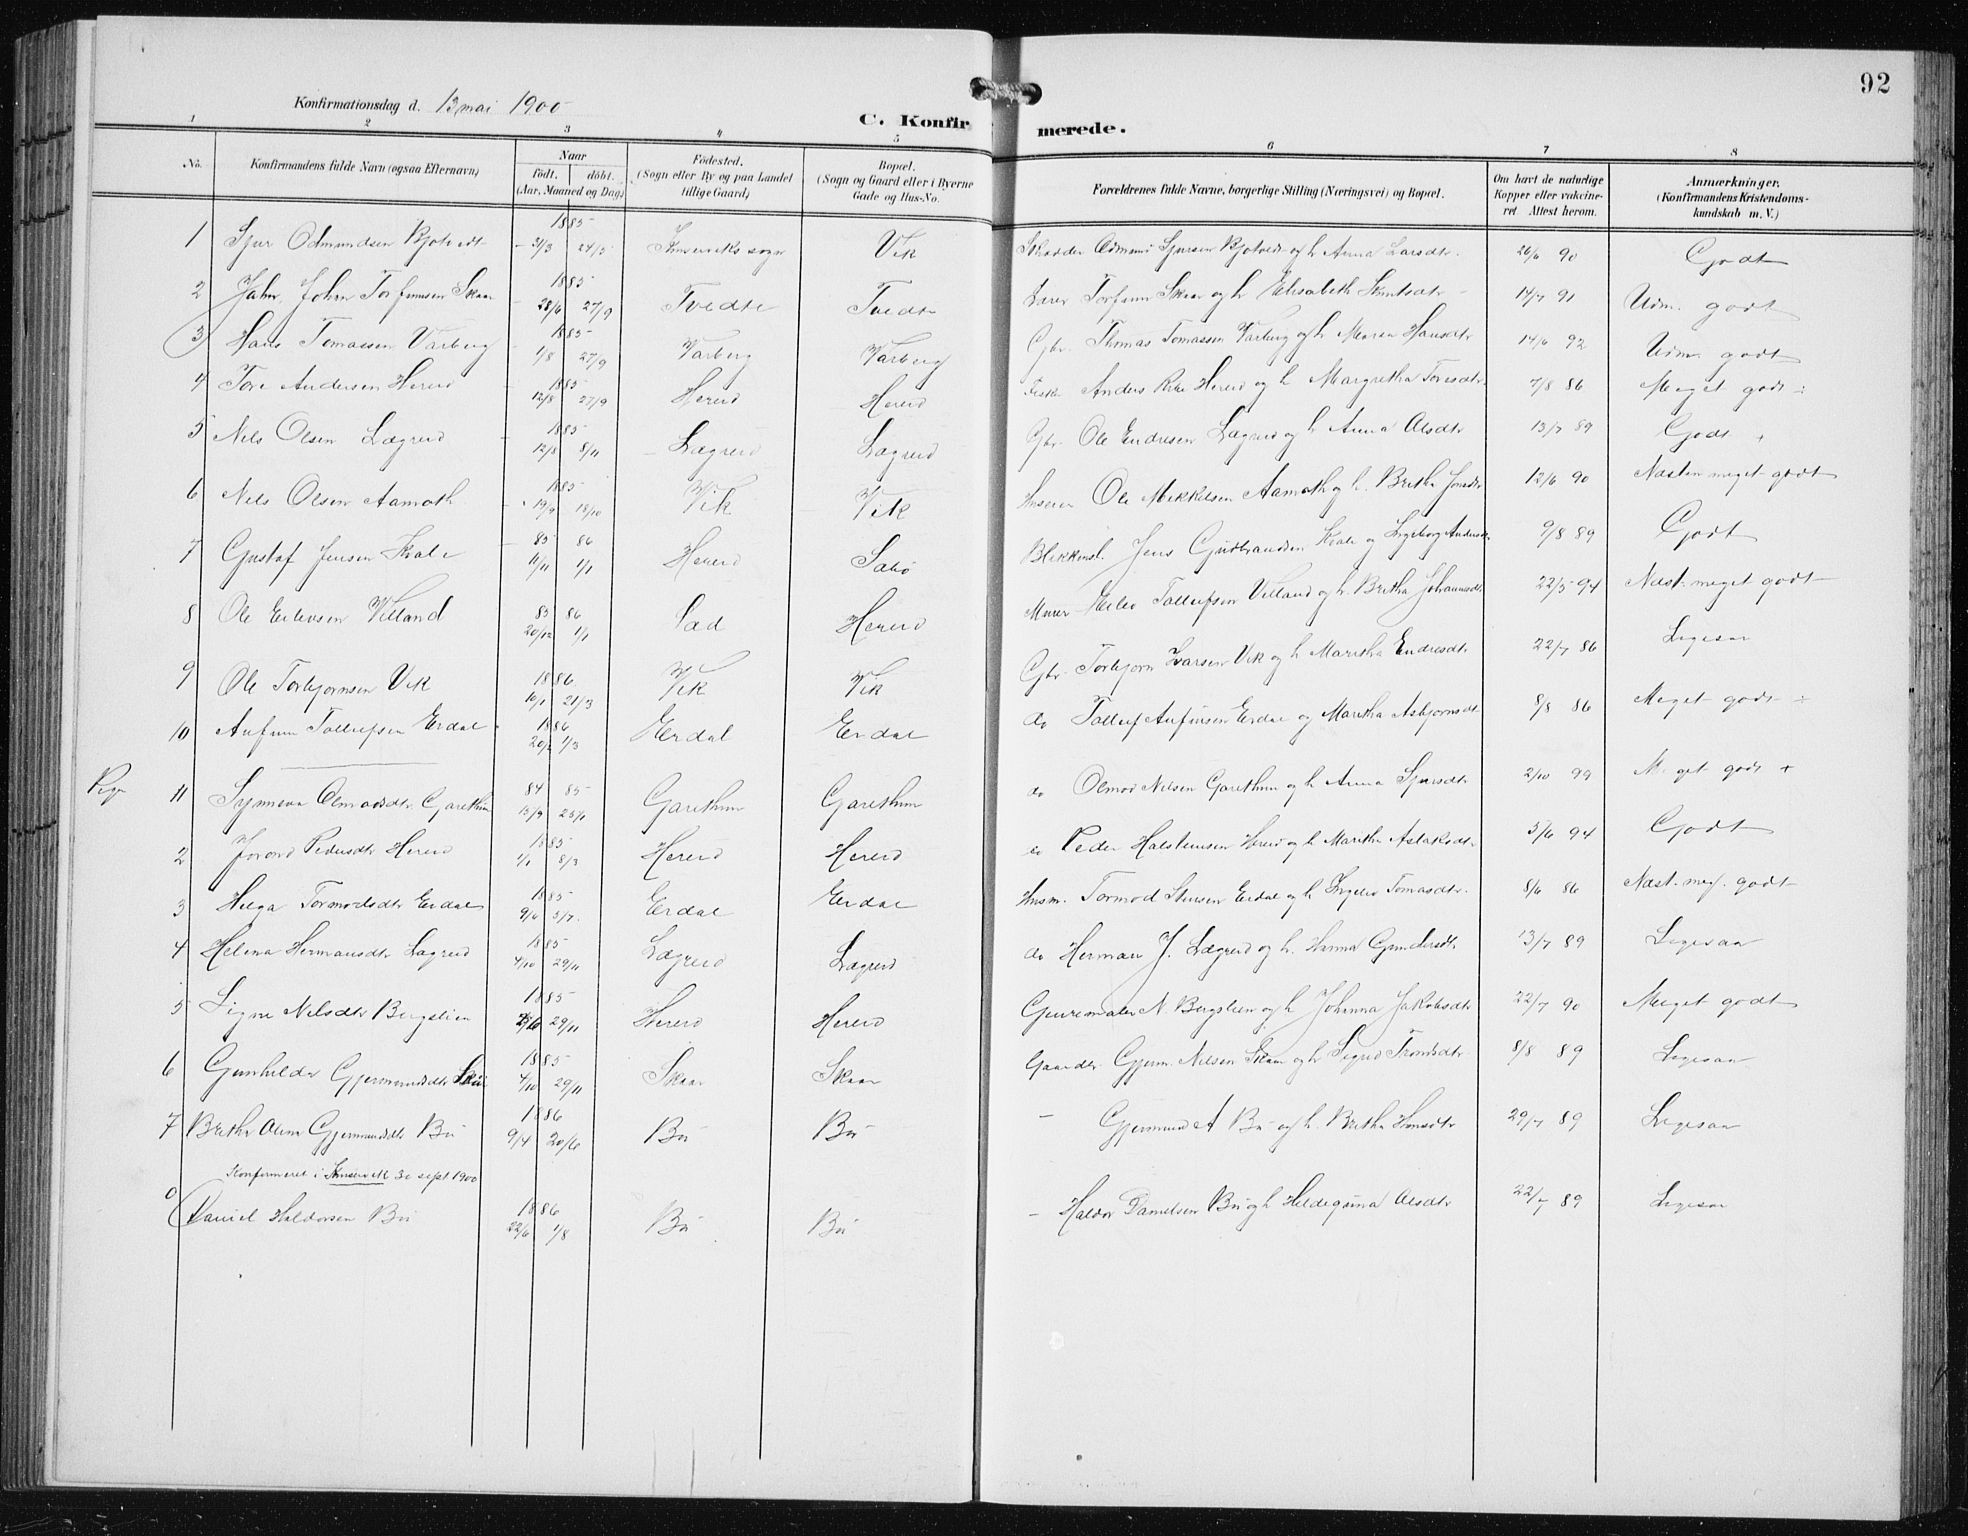 92
Konfirmationsdag d. 13 mai 1900
C. Konfirmerede.
1 2 3 4 5 6 7 8
No. Konfirmandens fulde Navn (ogsaa Efternavn) Naar födt. döbt. (Aar, Maaned og Dag) Födested. (Sogn eller By og paa Landet tillige Gaard) Bopæl. (Sogn og Gaard eller i Byerne Gade og Hus-No. Forældrenes fulde Navne, borgerlige Stilling (Næringsvei) og Bopæl. Om havt de naturlige Kopper eller vakcineret Attest herom. Anmærkninger. (Konfirmandens Kristendomskundskab m. V.)
1 Sjur Odmundsen Bjotvedt 1885 21/3 24/5 Kinserviks sogn Vik Skrædder Odmund Sjursen Bjotvedt og h Anna Larsdtr. 26/6 90 Godt
2 John Torfinnsen Skaar 1885 28/6 27/9 Tvedte Tvedte Lærer Torfinn Skaar og h Elisabeth Knutsdtr 14/7 91 Udm. godt
3 Hans Tomassen Varberg 1885 1/8 27/9 Varberg Varberg Gbr. Thomas Tomassen Varberg og h Maria Hansdtr 14/6 92 Udm. godt
4 Tore Andersen Hereid 1885 12/8 27/9 Hereid Hereid Anders Hereid og h Margretha Toresdtr 7/8 86 Meget godt ÷
5 Nils Olsen Lægreid 1885 12/8 8/11 Lægreid Lægreid Gbr. Ole Endresen Lægreid og h Anna Olsdtr 13/7 89 Godt
6 Nils Olsen Aamoth 1885 19/9 18/10 Vik Vik Ole Mikkelsen Aamoth og h. Britha Jonsdtr 12/6 90 Næsten meget godt
7 Gustaf Jensen Kvale 85 86 10/11 1/1 Hereid Sæbø Blikkensl. Jens Gudbrandsen Kvale og Ingeborg Andersdtr 9/8 89 Godt
8 Ole Eilevsen Villand 85 86 20/12 1/1 Lad Hereid Murer Eilev Tollefsen Villand og h. Britha Johannesdtr. 22/5 94 Næst. meget godt
9 Ole Torbjornsen Vik 1886 10/1 21/3 Vik Vik Gbr. Torbjorn Larsen Vik og h Maritha Endresdtr 22/7 86 Ligesaa
10 Anfinn Tollefsen Erdal 1886 1/3 Erdal Erdal do Tollef Anfinsen Erdal og Maritha Asbjornsdt 8/8 86 Meget godt ÷
Pige
11 Synneva Olmodsdtr Garethun 84 85 15/9 25/1 Garethun Garethun do Olmod Nilsen Garethun og h Anna Sjursdtr 2/10 99 Meget godt +
2 Jorond Pedersdtr Hereid 1885 1/1 8/3 Hereid Hereid do Peder Halsteinsen Hereid og h Maritha Aslaksdtr 5/6 94 Godt
3 Helga Tormodsdtr Erdal 1885 9/6 5/7 Erdal Erdal Husm. Tormod Steinsen Erdal og h Ingeleiv Tomasdtr. 8/6 86 Næst. meg. godt
4 Helena Hermansdtr Lægreid 1885 4/10 29/11 Lægreid Lægreid do Herman J. Lægreid og h. Hanna Gundersdtr 13/7 89 Ligesaa
5 Signe Nilsdtr Bergstien 1885 29/11 Hereid Hereid N. Bergstien og h Johanna Jakobsdtr 22/7 90 Meget godt
6 Gunhilda Gjermundsdtr Skaar 1885 4/10 29/11 Skaar Skaar Gaardbr. Gjerm. Nilsen Skaar og h Sigrid Trondsdtr 8/8 89 Ligesaa
7 Britha Olina Gjermundsdtr Bu 1886 9/4 20/6 Bu Bu - Gjermund A Bu og h. Britha Hansdtr 29/7 89 Ligesaa
Konfirmeret i Kinservik 30 sept 1900
Daniel Haldorsen Bu 1886 22/6 1/8 Bu Bu - Haldor Danielsen Bu og h Hildeguna Olsdtr 22/7 89 Ligesaa